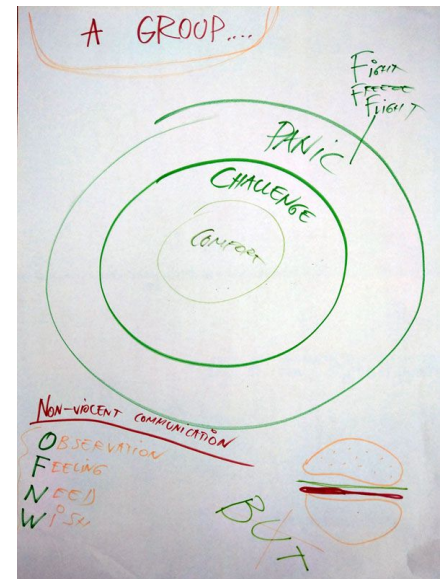 A GROUP....
FIGHT
FREEZE
FLIGHT
PANIC
CHALLENGE
COMFORT
NON-VIOLENT COMMUNICATION
OBSERVATION
FEELING
NEED
WISH
BUT